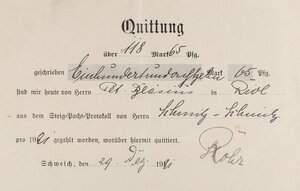 Quittung
über 118 Mark 65 Pfg.
geschrieben Einhundertundachtzehn Mark 65 Pfg.
sind mir heute von Herrn Pt. in Riol
aus dem Steig-Pacht-Protokoll von Herrn Schmitz-Schmitz
pro 1921 gezahlt worden, worüber hiermit quittiert.
Schweich, den 29 Dez 1921
Rohr